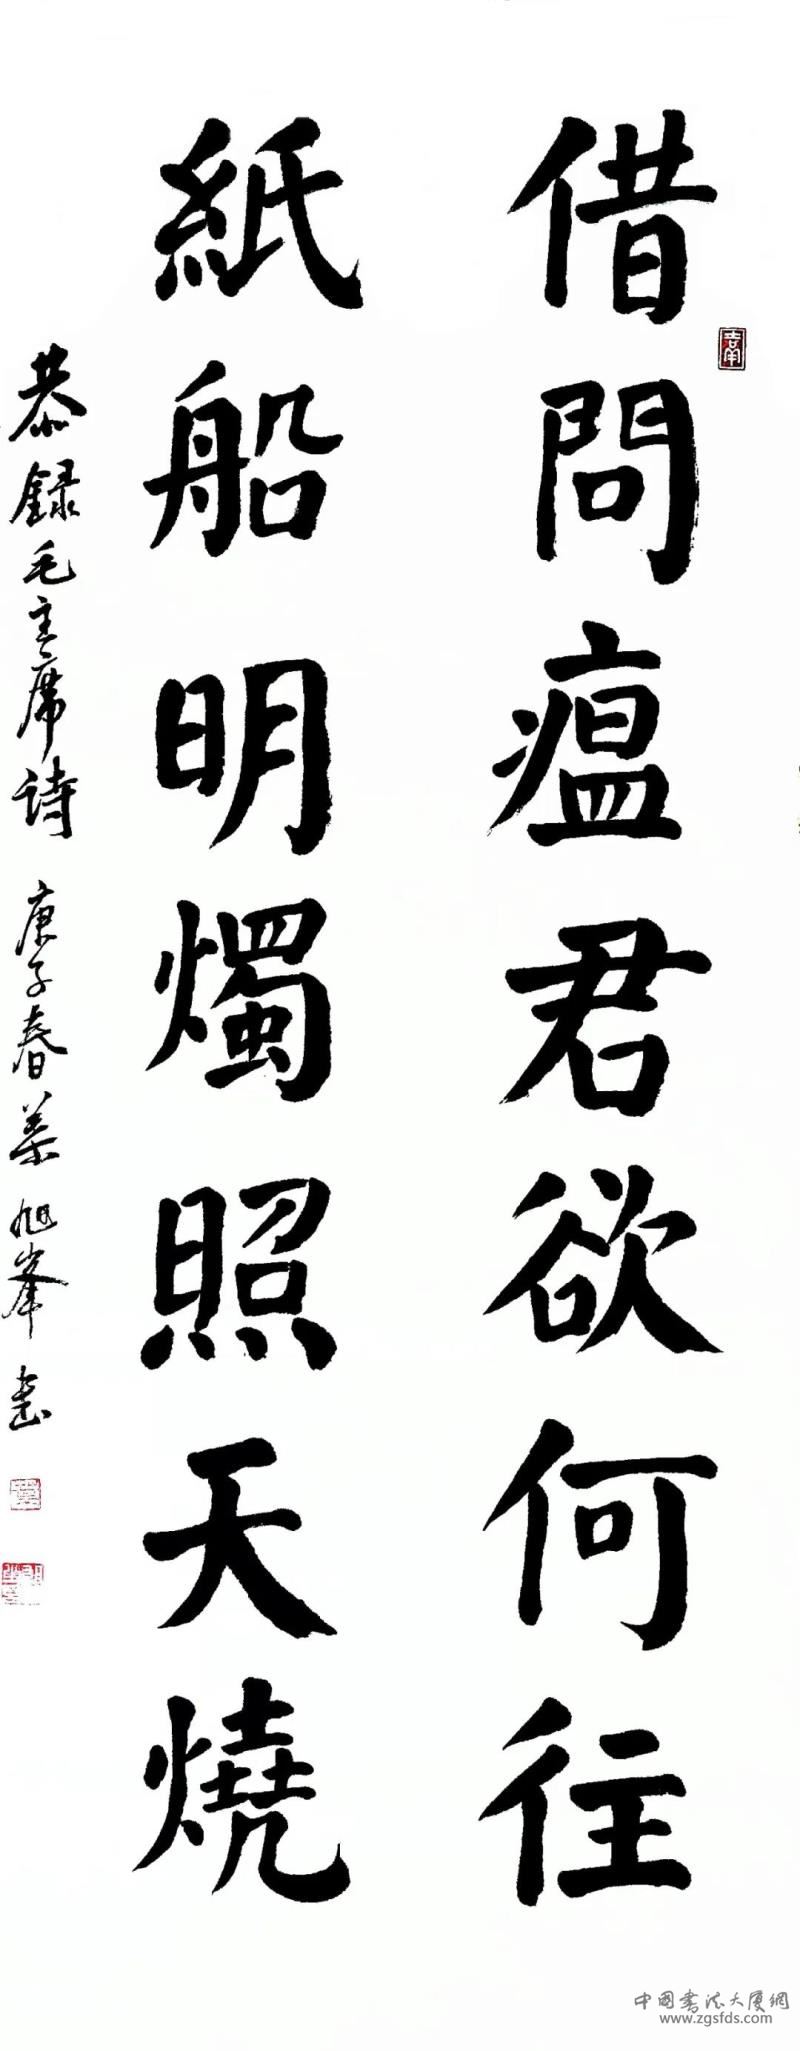 借問瘟君欲何往
紙船明燭照天燒
恭録毛主席诗 庚子春 葉旭峯書
中國書法大厦網
www.zgsfds.com